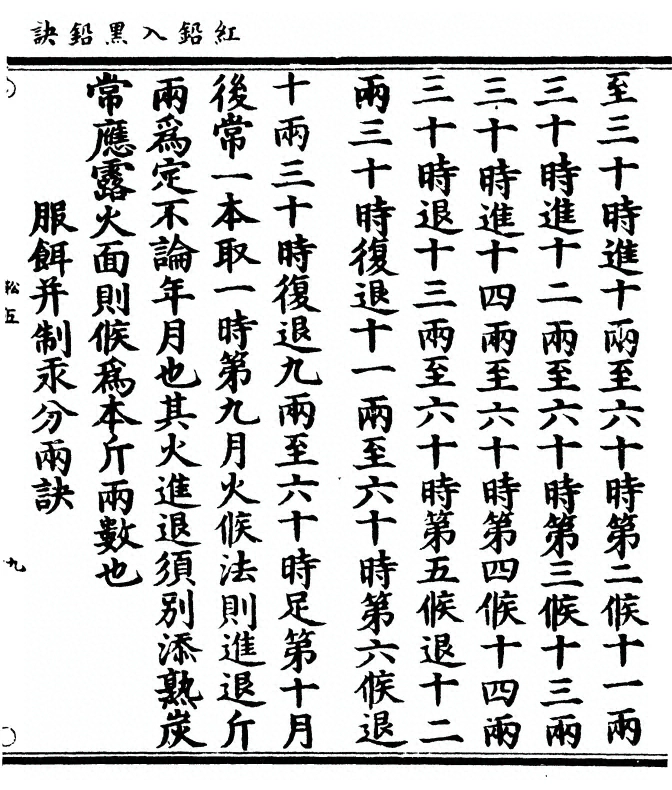 紅鉛入黑鉛訣
至三十時進十兩至六十時第二候十一兩
三十時進十二兩至六十時第三候十三兩
三十時進十四兩至六十時第四候十四兩
三十時退十三兩至六十時第五候退十二
兩三十時復退十一兩至六十時第六候退
十兩三十時復退九兩至六十時足第十月
後常一本取一時第九月火候法則進退斤
兩為定不論年月也其火進退須別添熟炭
常應露火面則候為本斤兩數也
服餌并制汞分兩訣
松五
九